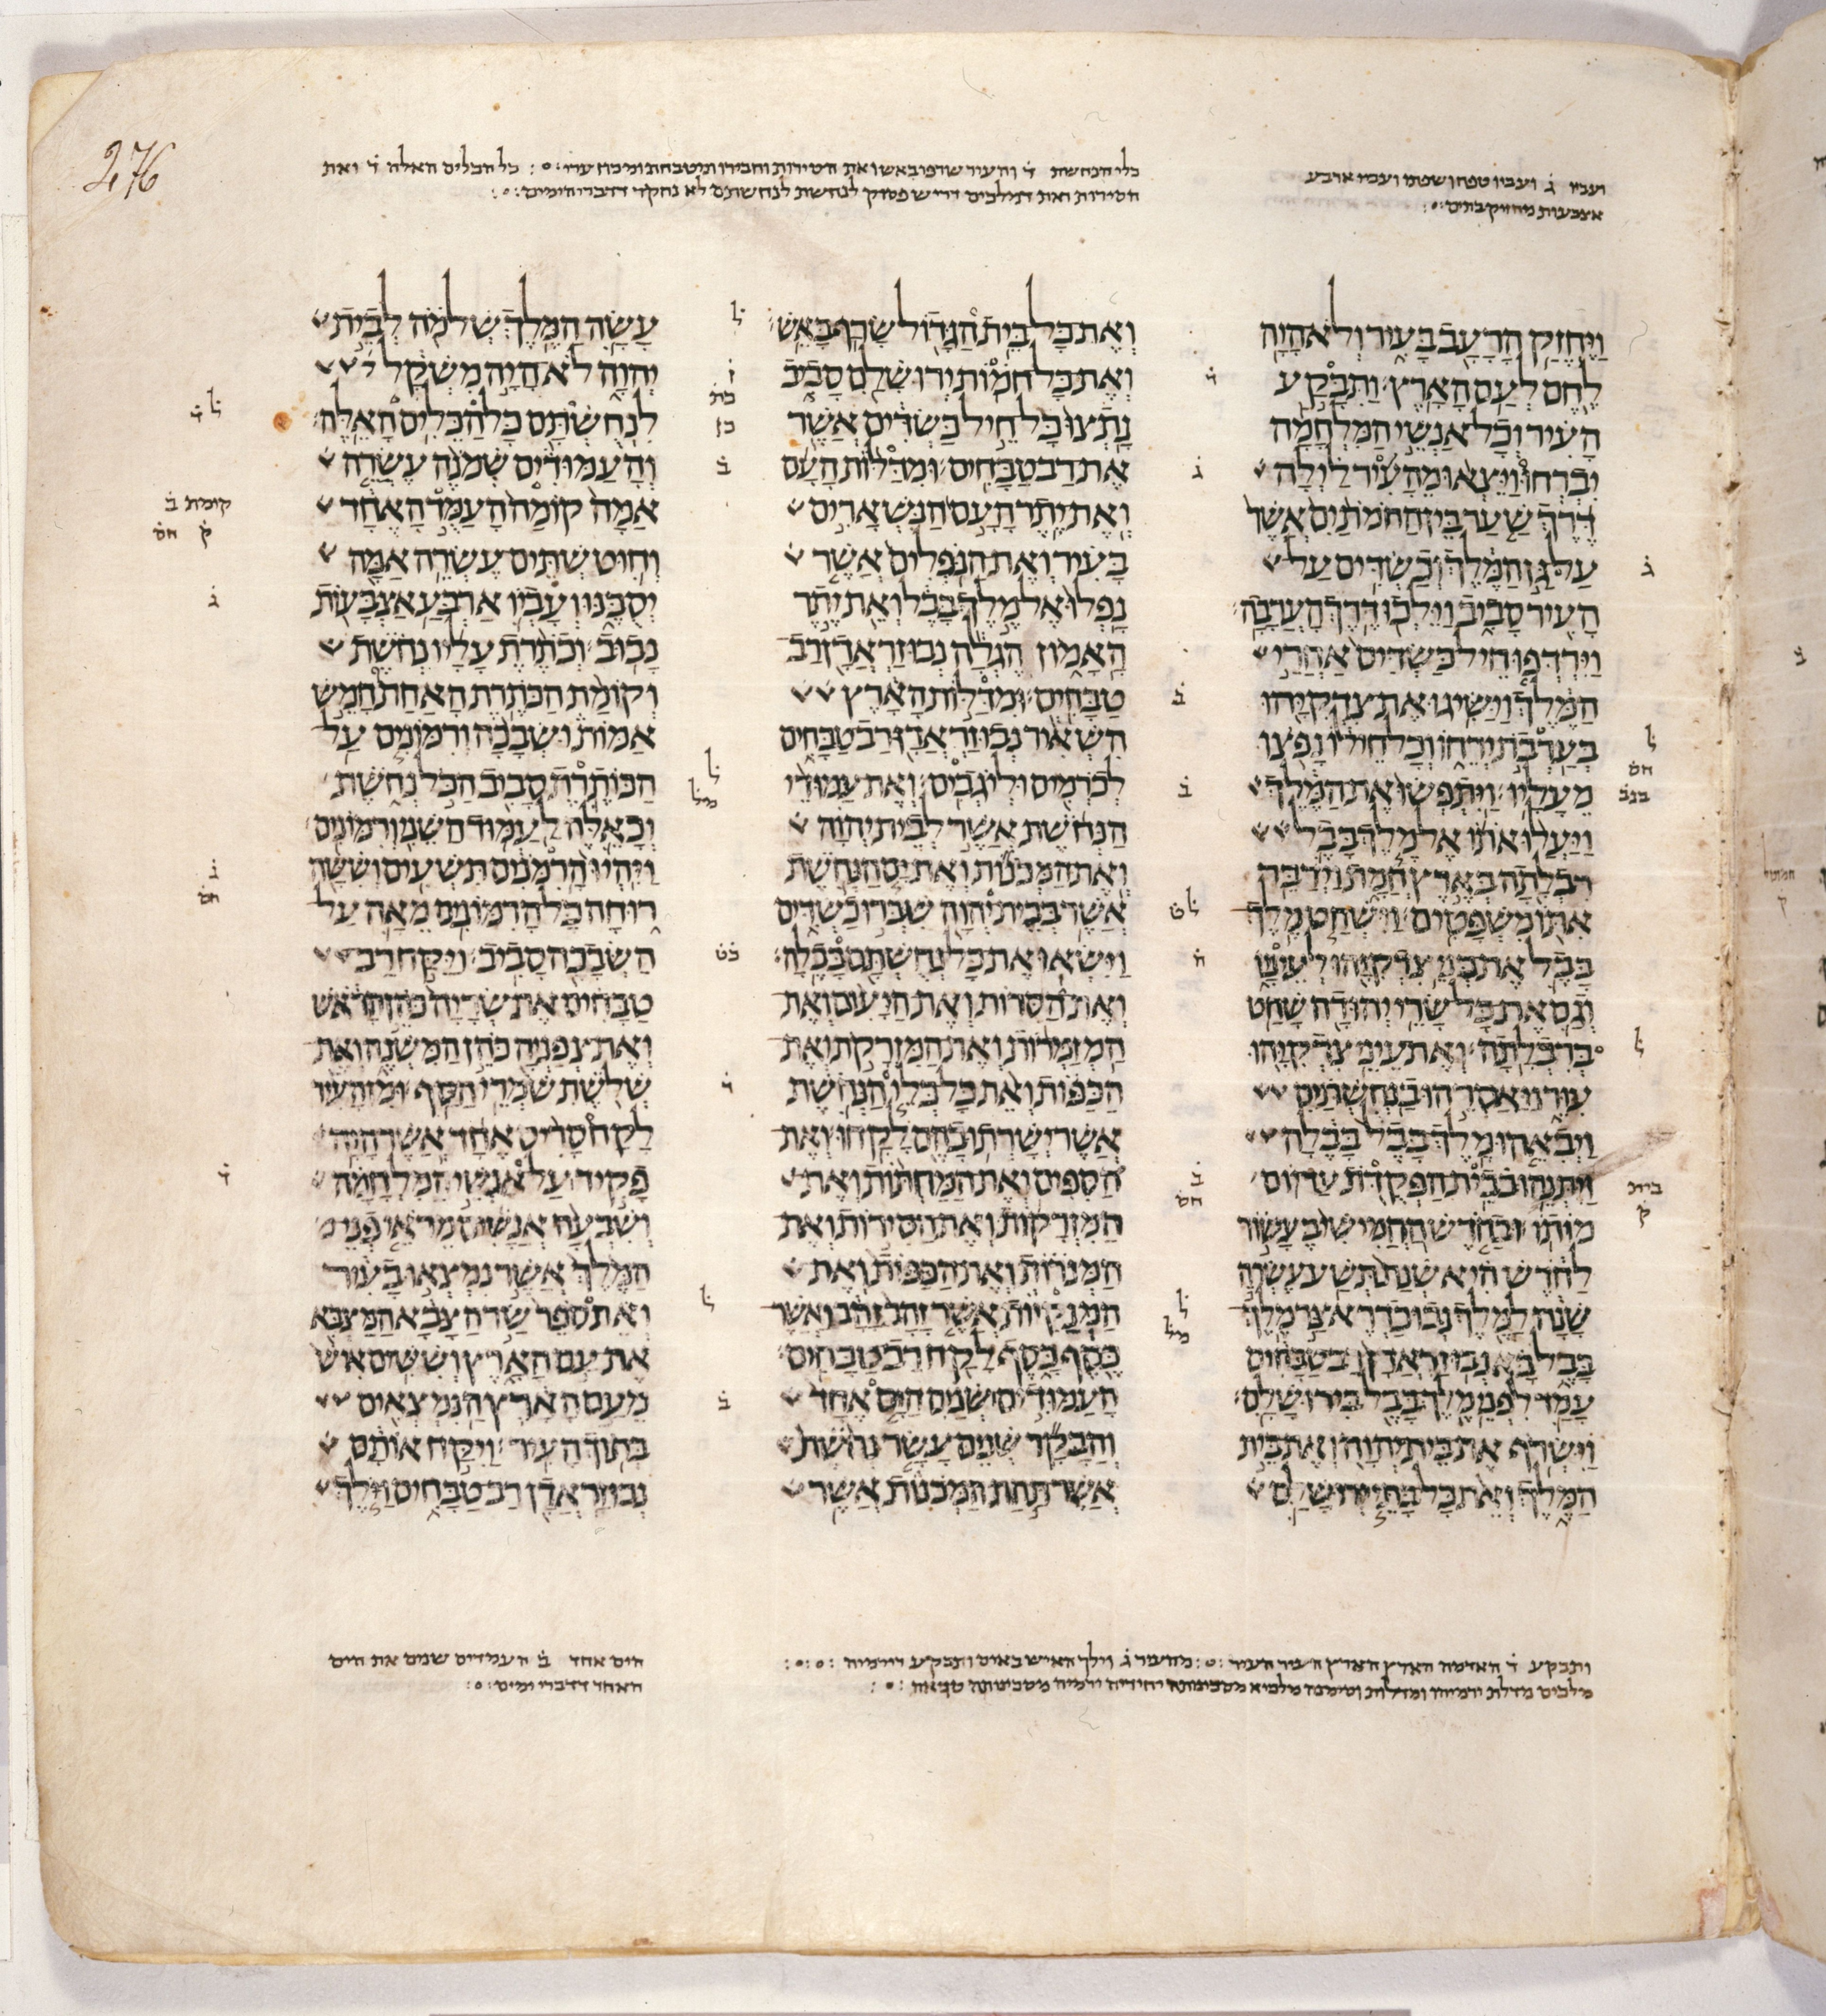 276
ועביו ג ועביו טפח ושפתו ועביו ארבע
אצבעות מחזיק בתים
כלי הנחשת ד והעיר שרפו באש ואת הסירות וחבירו
חסירות ואת דמלכים
ויחזק הרעב בעיר ולא היה
לחם לעם הארץ ותבקע
העיר וכל אנשי המלחמה
יברחו ויצאו מהעיר לילה
דרך שער בין החמתים אשר
על גן המלך וכשדים על
העיר סביב וילכו דרך הערבה
וירדפו חיל כשדים אחרי
המלך וישיגו את צדקיהו
בערבת ירחו וכל חילו נפצו
מעליו ויתפשו את המלך
ויעלו אתו אל מלך בבל
רבלתה בארץ חמת וידבר
אתו משפטים וישחט מלך
בבל את בני צדקיהו לעיניו
וגם את כל שרי יהודה שחט
ברבלתה ואת עיני צדקיהו
עור ויאסרהו בנחשתים
ויבאהו מלך בבל בבלה
ויתנהו בבית הפקדת עד יום
מותו ובחדש החמישי בעשור
לחדש היא שנת תשע עשרה
שנה למלך נבוכדראצר מלך
בבל בא נבוזראדן רב טבחים
עמד לפני מלך בבל בירושלם
וישרף את בית יהוה ואת בית
המלך ואת כל בתי ירושלם
ואת כל בית הגדול שרף באש
ואת כל חמות ירושלם סביב
נתצו כל חיל כשדים אשר
את רב טבחים ומדלות העם
ואת יתר העם הנשארים
בעיר ואת הנפלים אשר
נפלו אל מלך בבל ואת יתר
האמון הגלה נבוזראדן רב
טבחים ומדלות הארץ
השאיר נבוזראדן רב טבחים
לכרמים וליגבים ואת עמודי
הנחשת אשר לבית יהוה
ואת המכנות ואת ים הנחשת
אשר בבית יהוה שברו כשדים
וישאו את כל נחשתם בבלה
ואת הסרות ואת היעים ואת
המזמרות ואת המזרקת ואת
הכפות ואת כל כלי הנחשת
אשר ישרתו בהם לקחו ואת
הספים ואת המחתות ואת
המזרקות ואת הסירות ואת
המנרות ואת הכפות ואת
המנקיות אשר זהב זהב ואשר
כסף כסף לקח רב טבחים
העמודים שנים הים אחד
והבקר שנים עשר נחשת
אשר תחת המכנות אשר
עשה המלך שלמה לבית
יהוה לא היה משקל
לנחשתם כל הכלים האלה
והעמודים שמנה עשרה
אמה קומה העמד האחד
וחוט שתים עשרה אמה
יסבנו ועביו ארבע אצבעות
נבוב וכתרת עליו נחשת
וקומת הכתרת האחת חמש
אמות ושבכה ורמונים על
הכותרת סביב הכל נחשת
וכאלה לעמוד השני ורמונים
ויהיו הרמנים תשעים וששה
רוחה כל הרמונים מאה על
השבכה סביב ויקח רב
טבחים את שריה כהן הראש
ואת צפניה כהן המשנה ואת
שלשת שמרי הסף ומן העיר
לקח סריס אחד אשר היה
פקיד על אנשי המלחמה
ושבעה אנשים מראי פני
המלך אשר נמצאו בעיר
ואת ספר שר הצבא המצבא
את עם הארץ וששים איש
מעם הארץ הנמצאים
בתוך העיר ויקח אותם
נבוזראדן רב טבחים וילך
קומת ב
ק חס
בית
ק
ותבקע ד האדמה הארץ הארץ העיר העיר מהעיר ג וילך האיש באיש ותבקע דירמיה
הים אחד ב העמדים שנים את הים
האחד דדברי ימים